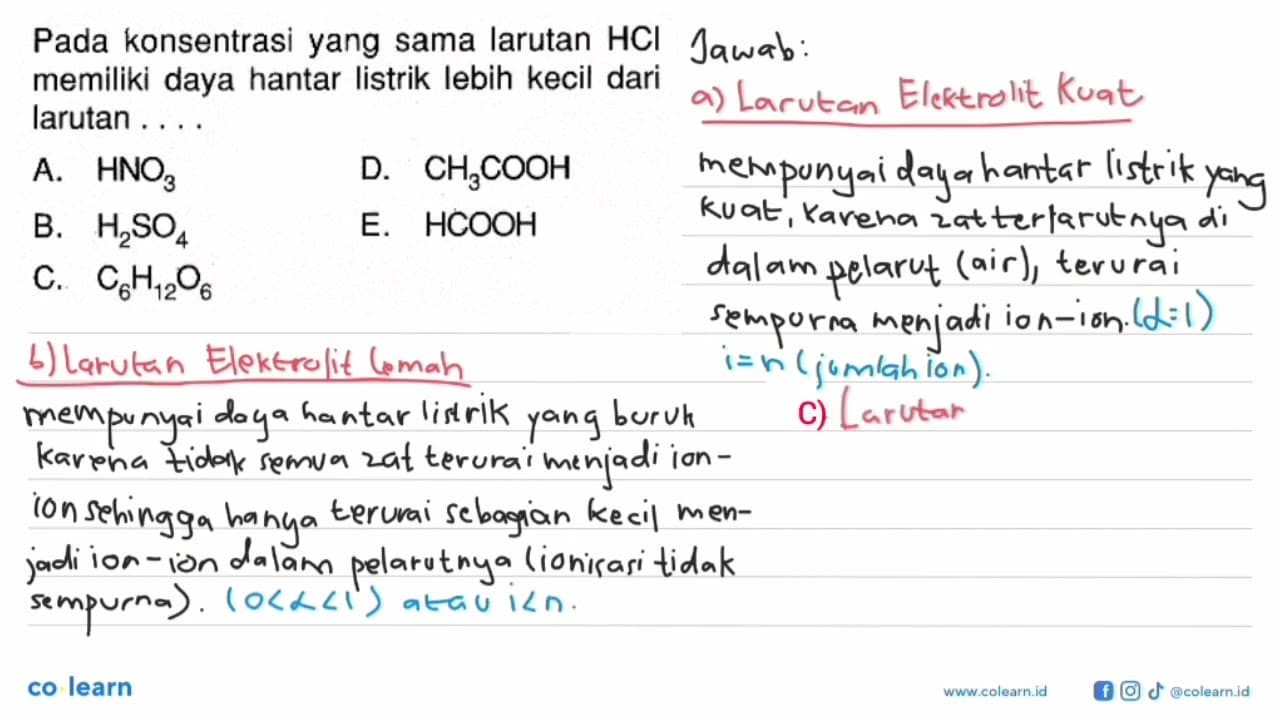 Pada konsentrasi yang sama larutan HCl
memiliki daya hantar listrik lebih kecil dari
larutan . . . .
A. HNO₃
B. H₂SO₄
C. C₆H₁₂O₆
D. CH₃COOH
E. HCOOH
Jawab:
a) Larutan Elektrolit Kuat
mempunyai daya hantar listrik yang
kuat, karena zat terlarutnya di
dalam pelarut (air), terurai
sempurna menjadi ion-ion. (α=1)
i=n (jumlah ion).
b) Larutan Elektrolit Lemah
mempunyai daya hantar listrik yang buruk
karena tidak semua zat terurai menjadi ion-
ion sehingga hanya terurai sebagian kecil men-
jadi ion-ion dalam pelarutnya (ionisasi tidak
sempurna). (0<α<1) atau i<n.
C) Larutan
co learn
www.colearn.id
@colearn.id